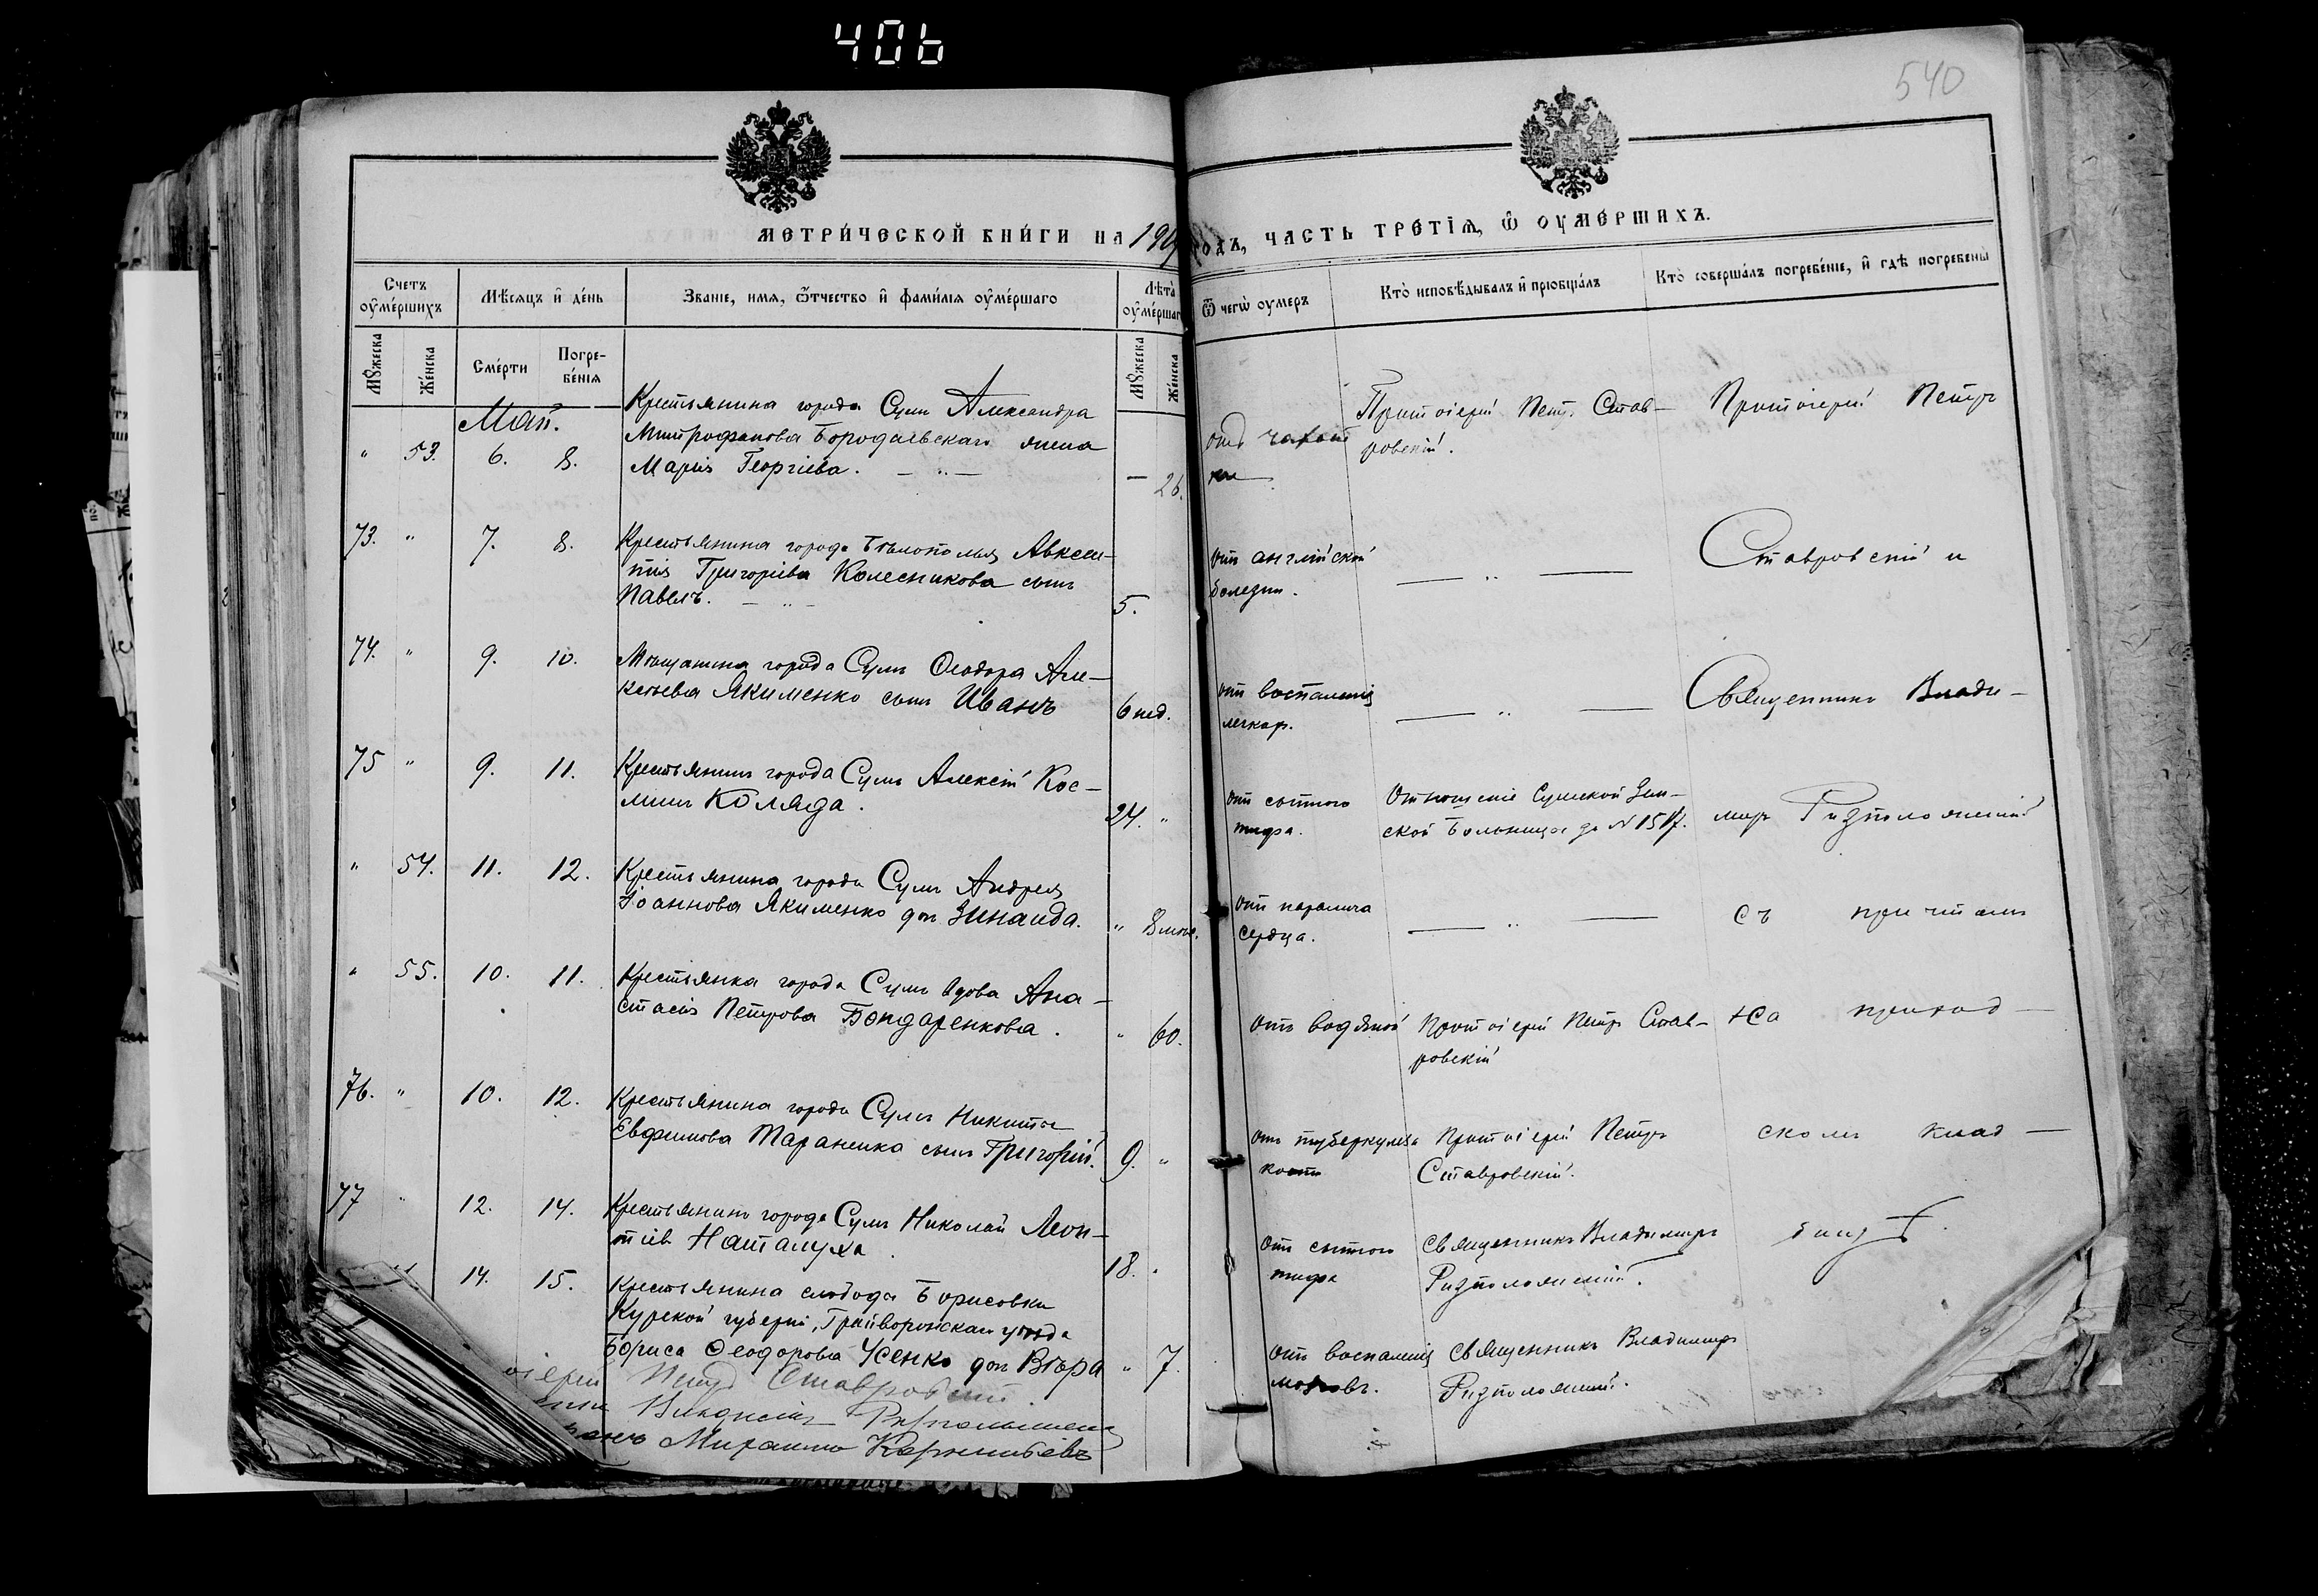 406
540
МЕТРИ́ЧЕСКОЙ КНИ́ГИ НА 190
ГОДЪ, ЧАСТЬ ТРЕТІЯ, Ѿ ОУМЕ́РШИХЪ.
Счетъ оу҆ме́ршихъ
Мѣ́сяцъ и҆ де́нь
Званіе, имя, ѻ҆́тчество и҆ фами́лія оу҆ме́ршаго
Лѣта̀ оу҆ме́ршаг
Ѿ чегѡ̀ оумеръ
Кто̀ исповѣ́дывалъ и҆ прїобща́лъ
Кто̀ соверша́лъ погребе́ніе, и҆ гдѣ̀ погребены̀
Мꙋ́жеска
Же́нска
Сме́рти
Погре-
бе́нія
Мꙋ́жеска
Же́нска
Май.
" 53. 6. 8.
Крестьянина города Сумъ Александра
Митрофанова Бородаевскаго жена
Марія Георгіева. — " —
— 26.
отъ чахот
ки
Протоіерей Петръ Став-
ровскій.
Протоіерей Петръ
73. " 7. 8.
Крестьянина города Бѣлополья Авксен-
тія Григоріева Колесникова сынъ
Павелъ. — " —
5.
отъ англійской
болезни.
— " —
Ставровскій и
74. " 9. 10.
Мѣщанина города Сумъ Ѳеодора Али-
Якименко сынъ Иванъ
6 нед.
отъ воспаленія
легкихъ.
— " —
Священникъ Влади-
75 " 9. 11.
Крестьянинъ города Сумъ Алексій Кос-
минъ Коляда.
24. "
отъ сыпного
тифа.
Отношеніе Сумской Зем-
ской Больницы за № 1517.
міръ Ризположенскій
" 54. 11. 12.
Крестьянина города Сумъ Андрея
Іоаннова Якименко дочь Зинаида.
" 8 мѣс.
отъ паралича
сердца.
— " —
съ причтомъ
" 55. 10. 11.
Крестьянка города Сумъ вдова Ана-
стасія Петрова Бондаренкова.
" 60.
отъ водяной
Протоіерей Петръ Став-
ровскій
на приход-
76. " 10. 12.
Крестьянина города Сумъ Никиты
Евфимова Тараненка сынъ Григорій.
9. "
отъ туберкулеза
кости
Протоіерей Петръ
Ставровскій.
скомъ клад-
77 " 12. 14.
Крестьянинъ города Сумъ Николай Леон-
тіевъ Наталуха
18. "
отъ сыпного
тифа
Священникъ Владиміръ
Ризположенскій.
бищѣ.
14. 15.
Крестьянина слобода Борисовки
Курской губерніи, Грайворонскаго уѣзда
Бориса Ѳеодорова Усенко дочь Вѣра
" 7.
отъ воспаленія
мозговъ.
Священникъ Владиміръ
Ризположенскій.
оіерей Петръ Ставровскій
Михаилъ